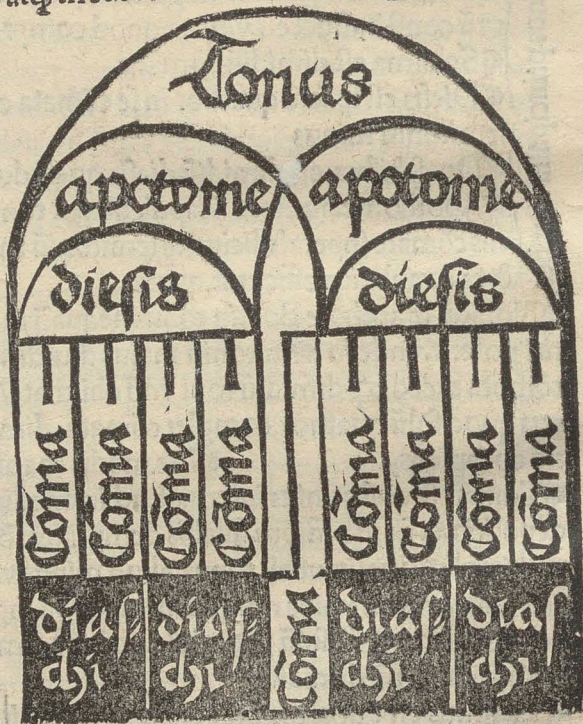 Tonus
apotome apotome
diesis diesis
Cōma Cōma Cōma Cōma Cōma Cōma Cōma Cōma
diaſ- diaſ- Cōma diaſ- diaſ
chi chi chi chi